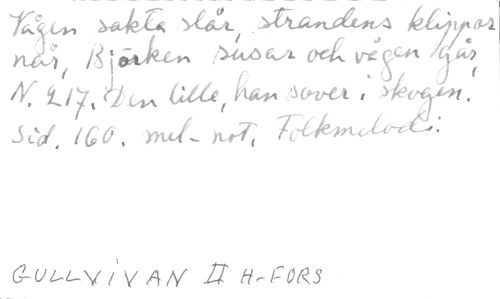 Vågen sakta slår, strandens klippor
når, Björken susar och vågen går,
N. 217. Den lille, han sover i skogen.
Sid. 160. mel-not. Folkmelodi.
GULLVIVAN II H-FORS